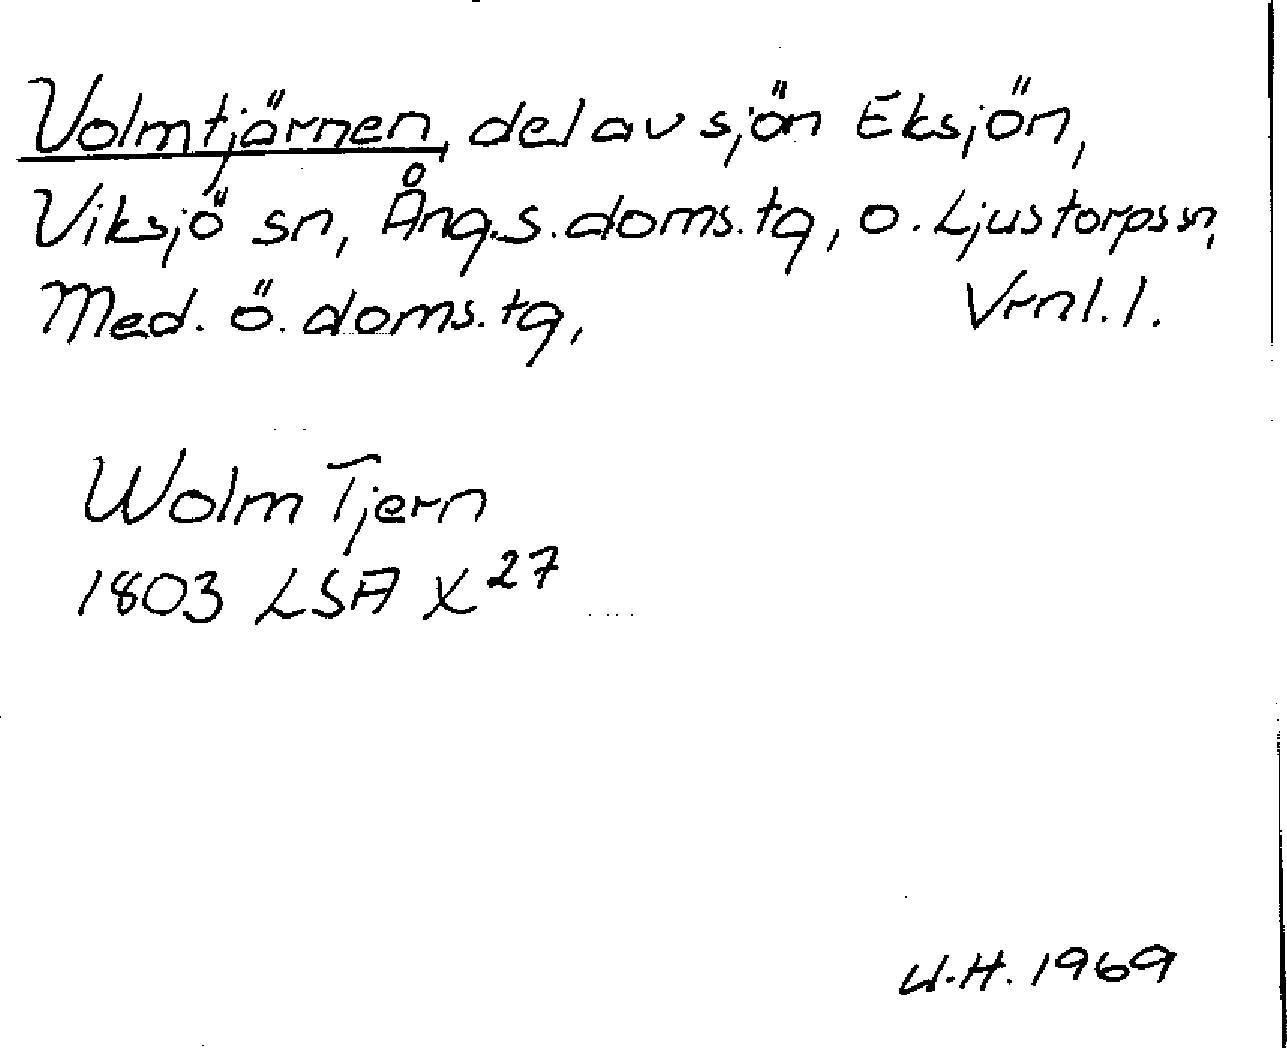 Volmtjärnen, del av sjön Eksjön,
Viksjö sn, Ång.s.doms.tg, o. Ljustorps sn,
Med. ö. doms.tg, Vrnl. l.
Wolm Tjern
1803 LSA X 27
U.H. 1969